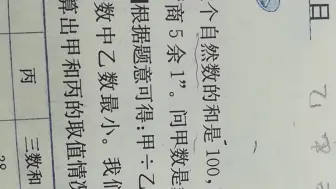 个自然数的和是100,
商5余1”。问甲数是
根据题意可得:甲÷乙
数中乙数最小。我们
算出甲和丙的取值情况
丙 三数和